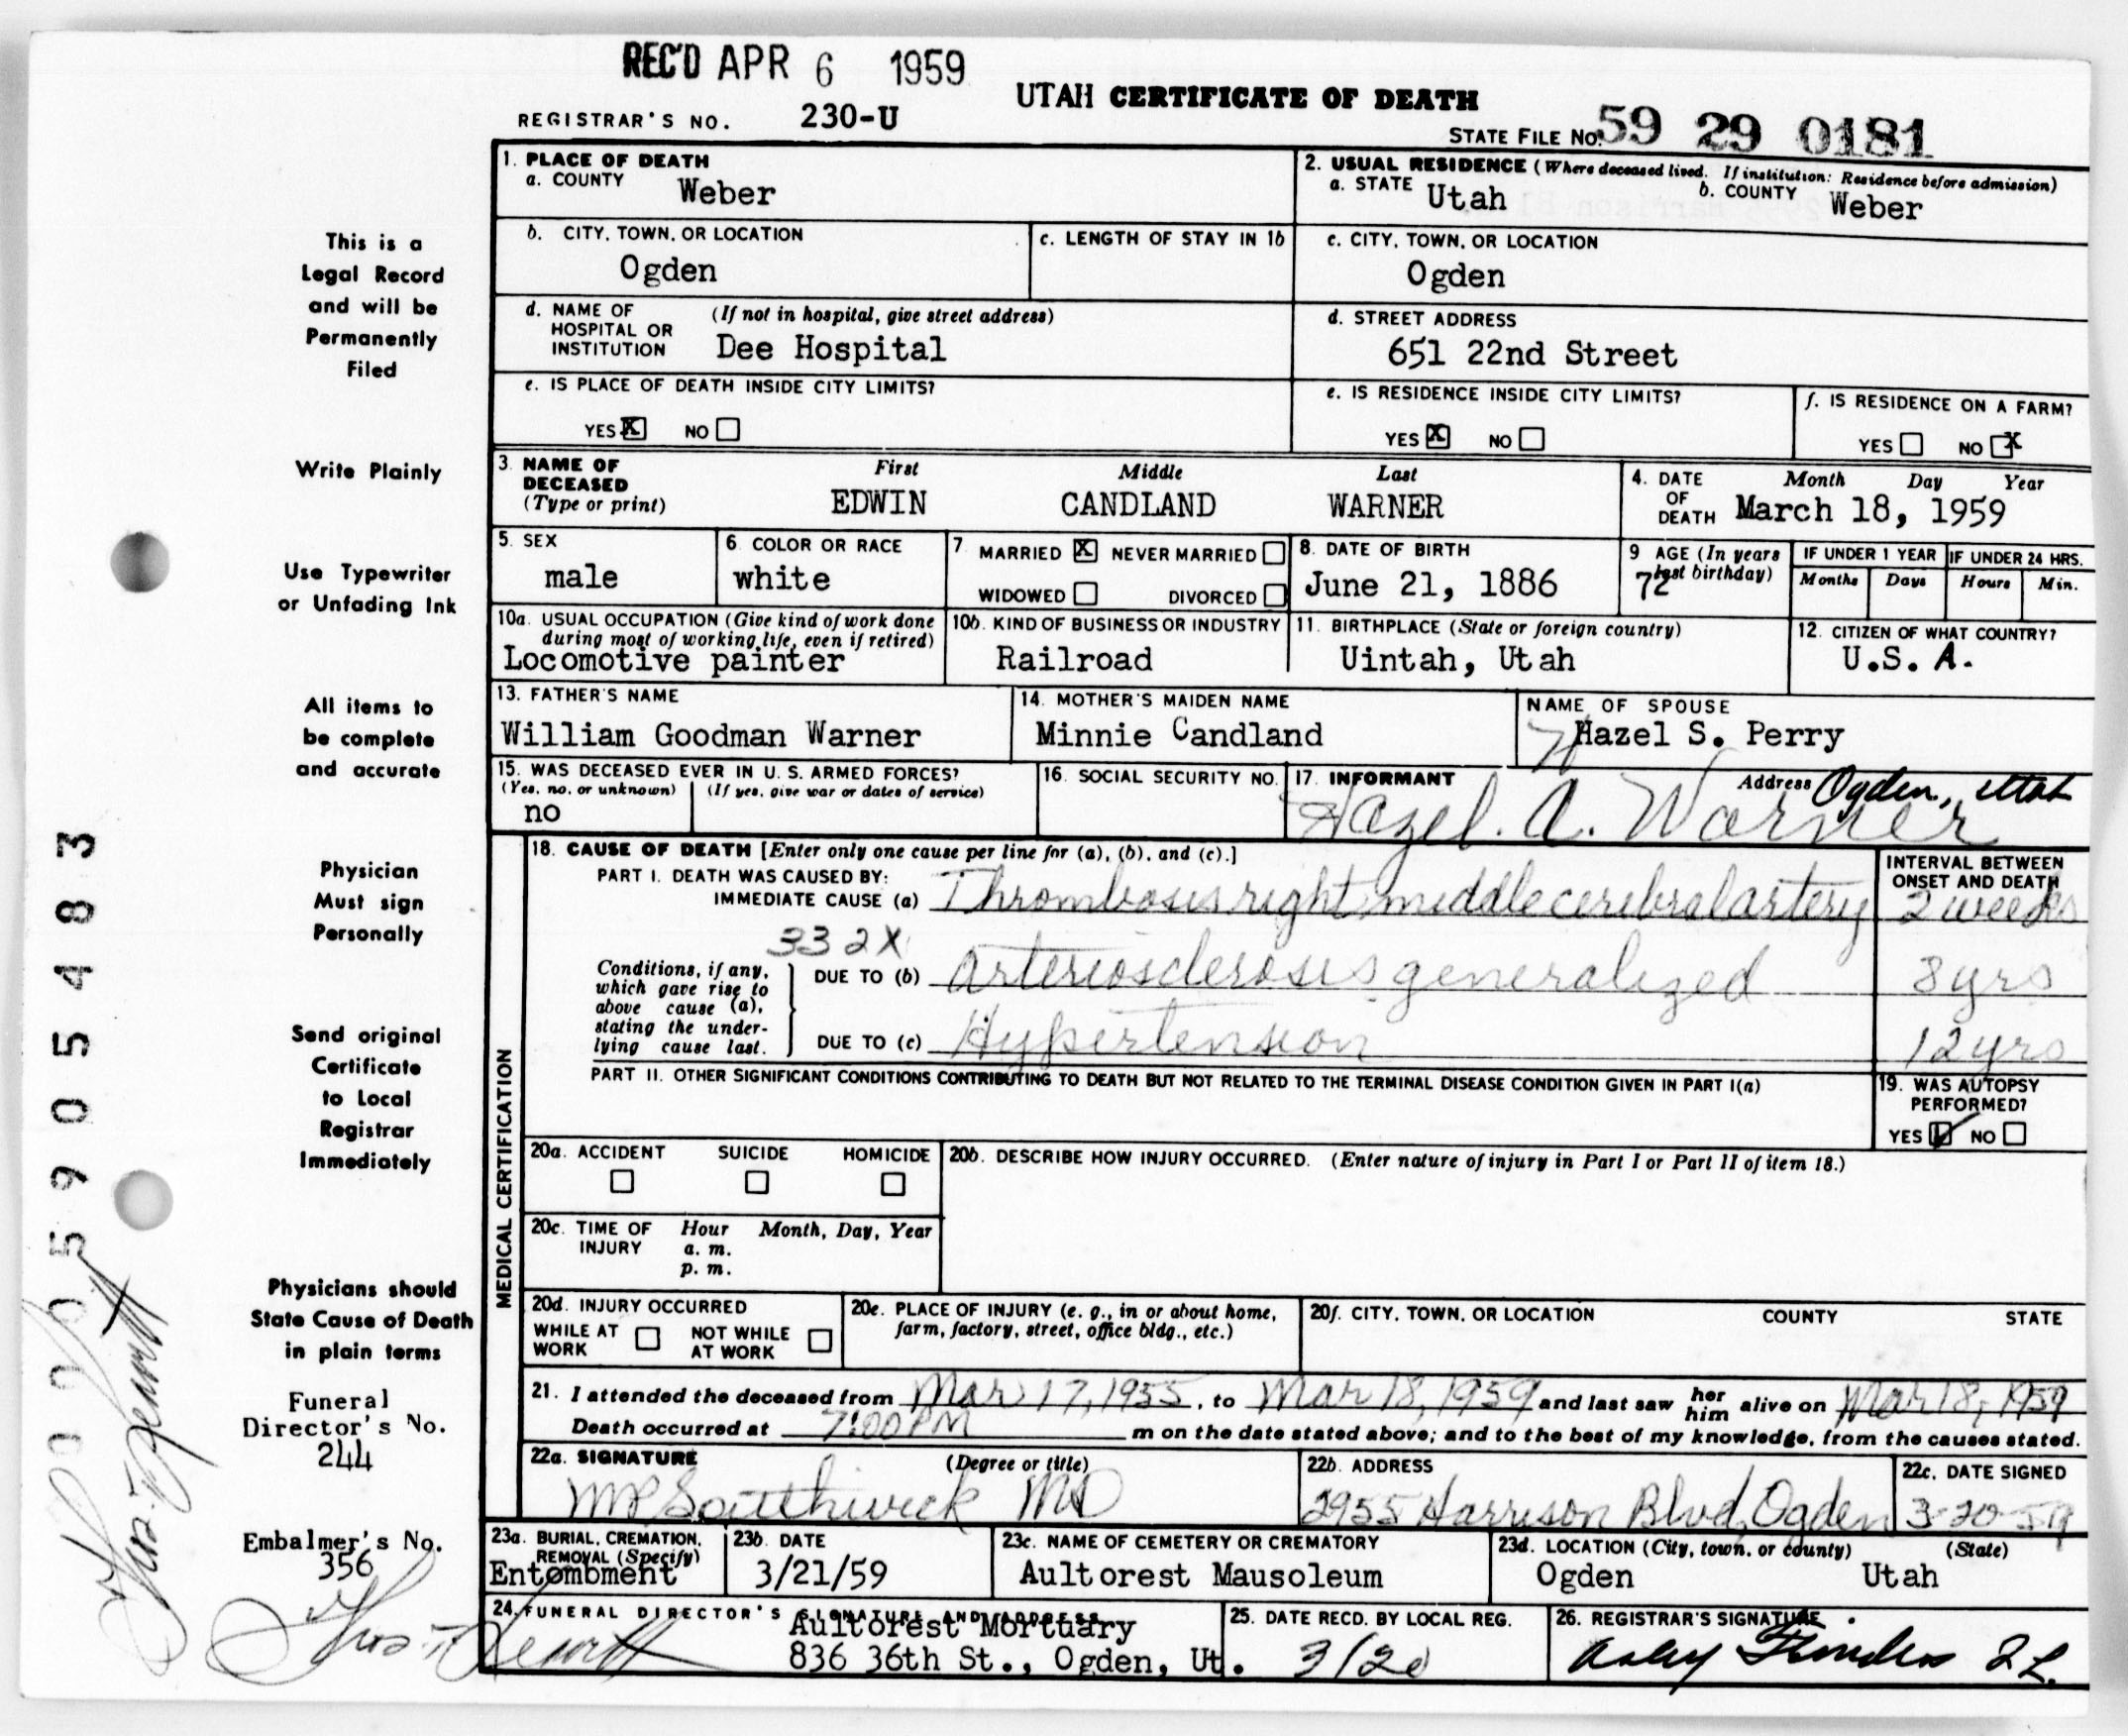 REC'D APR 6 1959
UTAH CERTIFICATE OF DEATH
REGISTRAR'S NO. 230-U
STATE FILE No. 59 29 0181
1. PLACE OF DEATH
a. COUNTY Weber
2. USUAL RESIDENCE (Where deceased lived. If institution: Residence before admission)
a. STATE Utah b. COUNTY Weber
b. CITY, TOWN, OR LOCATION
Ogden
c. LENGTH OF STAY IN 1b
c. CITY, TOWN, OR LOCATION
Ogden
d. NAME OF HOSPITAL OR INSTITUTION (If not in hospital, give street address)
Dee Hospital
d. STREET ADDRESS
651 22nd Street
e. IS PLACE OF DEATH INSIDE CITY LIMITS?
YES X NO
e. IS RESIDENCE INSIDE CITY LIMITS?
YES X NO
f. IS RESIDENCE ON A FARM?
YES NO X
3. NAME OF DECEASED (Type or print)
First Middle Last
EDWIN CANDLAND WARNER
4. DATE OF DEATH Month Day Year
March 18, 1959
5. SEX
male
6. COLOR OR RACE
white
7. MARRIED X NEVER MARRIED
WIDOWED DIVORCED
8. DATE OF BIRTH
June 21, 1886
9 AGE (In years last birthday)
72
IF UNDER 1 YEAR IF UNDER 24 HRS.
Months Days Hours Min.
10a. USUAL OCCUPATION (Give kind of work done during most of working life, even if retired)
Locomotive painter
10b. KIND OF BUSINESS OR INDUSTRY
Railroad
11. BIRTHPLACE (State or foreign country)
Uintah, Utah
12. CITIZEN OF WHAT COUNTRY?
U.S. A.
13. FATHER'S NAME
William Goodman Warner
14. MOTHER'S MAIDEN NAME
Minnie Candland
NAME OF SPOUSE
Hazel S. Perry
15. WAS DECEASED EVER IN U. S. ARMED FORCES?
(Yes, no, or unknown) (If yes, give war or dates of service)
no
16. SOCIAL SECURITY NO.
17. INFORMANT Address Ogden, Utah
Hazel. A. Warner
18. CAUSE OF DEATH [Enter only one cause per line for (a), (b), and (c).]
INTERVAL BETWEEN ONSET AND DEATH
PART I. DEATH WAS CAUSED BY:
IMMEDIATE CAUSE (a) Thrombosis right middle cerebral artery 2 weeks
332X
Conditions, if any, which gave rise to above cause (a), stating the underlying cause last.
DUE TO (b) arteriosclerosis generalized 8 yrs
DUE TO (c) Hypertension 12 yrs
PART II. OTHER SIGNIFICANT CONDITIONS CONTRIBUTING TO DEATH BUT NOT RELATED TO THE TERMINAL DISEASE CONDITION GIVEN IN PART I(a)
19. WAS AUTOPSY PERFORMED?
YES NO
MEDICAL CERTIFICATION
20a. ACCIDENT SUICIDE HOMICIDE
20b. DESCRIBE HOW INJURY OCCURRED. (Enter nature of injury in Part I or Part II of item 18.)
20c. TIME OF INJURY Hour Month, Day, Year
a. m.
p. m.
20d. INJURY OCCURRED
WHILE AT WORK NOT WHILE AT WORK
20e. PLACE OF INJURY (e. g., in or about home, farm, factory, street, office bldg., etc.)
20f. CITY, TOWN, OR LOCATION COUNTY STATE
21. I attended the deceased from Mar 17, 1955, to Mar 18, 1959 and last saw her him alive on Mar 18, 1959
Death occurred at 7:00 PM m on the date stated above; and to the best of my knowledge, from the causes stated.
22a. SIGNATURE (Degree or title)
Southwick MD
22b. ADDRESS
2955 Harrison Blvd, Ogden
22c. DATE SIGNED
3-20-59
23a. BURIAL, CREMATION, REMOVAL (Specify)
Entombment
23b. DATE
3/21/59
23c. NAME OF CEMETERY OR CREMATORY
Aultorest Mausoleum
23d. LOCATION (City, town, or county) (State)
Ogden Utah
24. FUNERAL DIRECTOR'S SIGNATURE AND ADDRESS
Aultorest Mortuary
836 36th St., Ogden, Ut.
25. DATE RECD. BY LOCAL REG.
3/20
26. REGISTRAR'S SIGNATURE
This is a
Legal Record
and will be
Permanently
Filed
Write Plainly
Use Typewriter
or Unfading Ink
All items to
be complete
and accurate
Physician
Must sign
Personally
Send original
Certificate
to Local
Registrar
Immediately
Physicians should
State Cause of Death
in plain terms
Funeral
Director's No.
244
Embalmer's No.
356